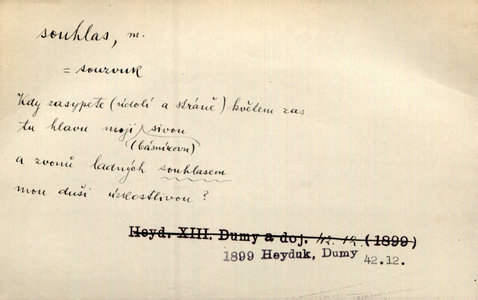 souhlas, m.
= souzvuk
Kdy zasypete (údolí a stráně) květem zas
tu hlavu moji sivou
(básníkovu)
a zvonů ladných souhlasem
mou duši úzkostlivou?
Heyd. XIII. Dumy a doj. 42. 12. (1899)
1899 Heyduk, Dumy 42.12.